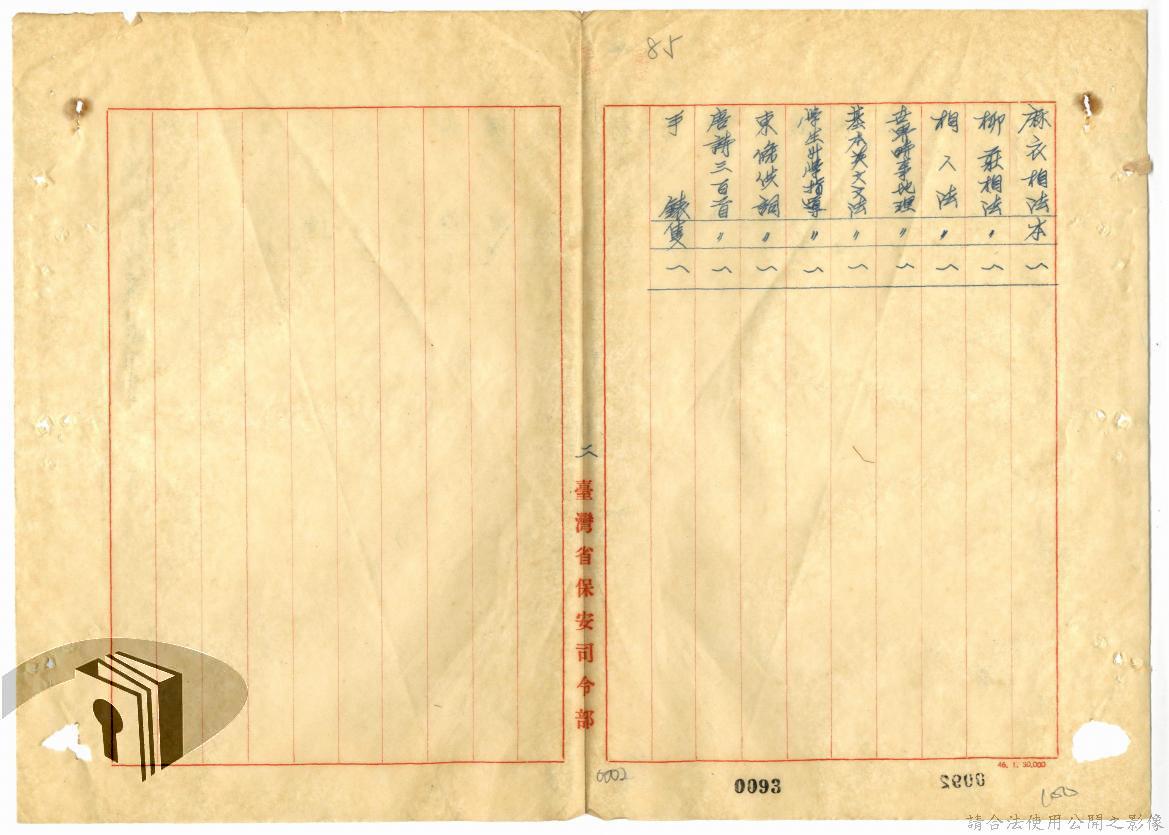 85
麻衣相法 本 一
柳莊相法 〃 一
相人法 〃 一
世界時事地理 〃 一
基本英文文法 〃 一
學生升學指導 〃 一
東條供詞 〃 一
唐詩三百首 〃 一
手錶 隻 一
二
臺灣省保安司令部
46. 1. 30,000
0002
0093
0092
請合法使用公開之影像